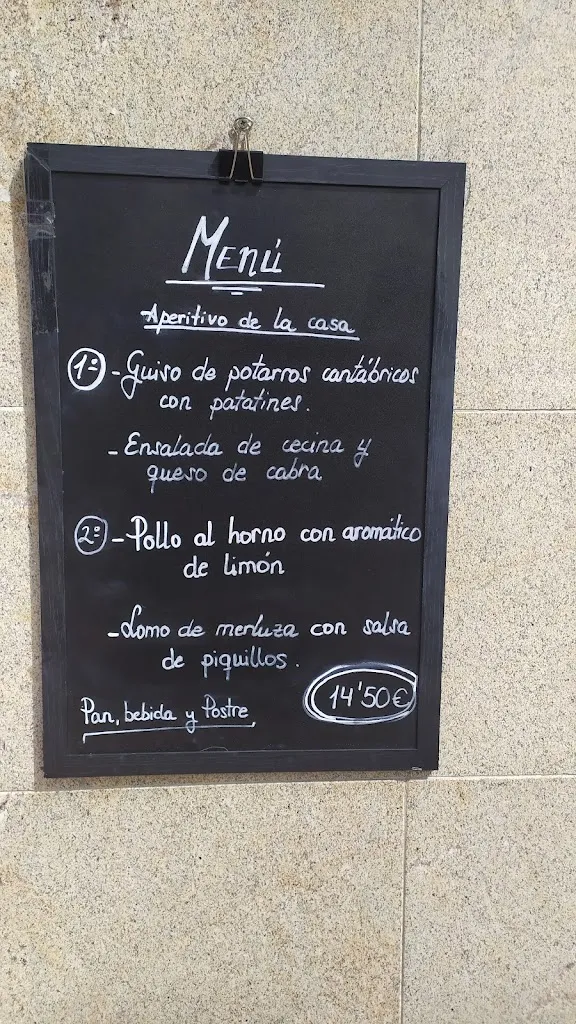 Menú
Aperitivo de la casa
1º - Guiso de potarros cantábricos
con patatines.
- Ensalada de cecina y
queso de cabra
2º - Pollo al horno con aromático
de limón
- Lomo de merluza con salsa
de piquillos.
14'50€
Pan, bebida y Postre